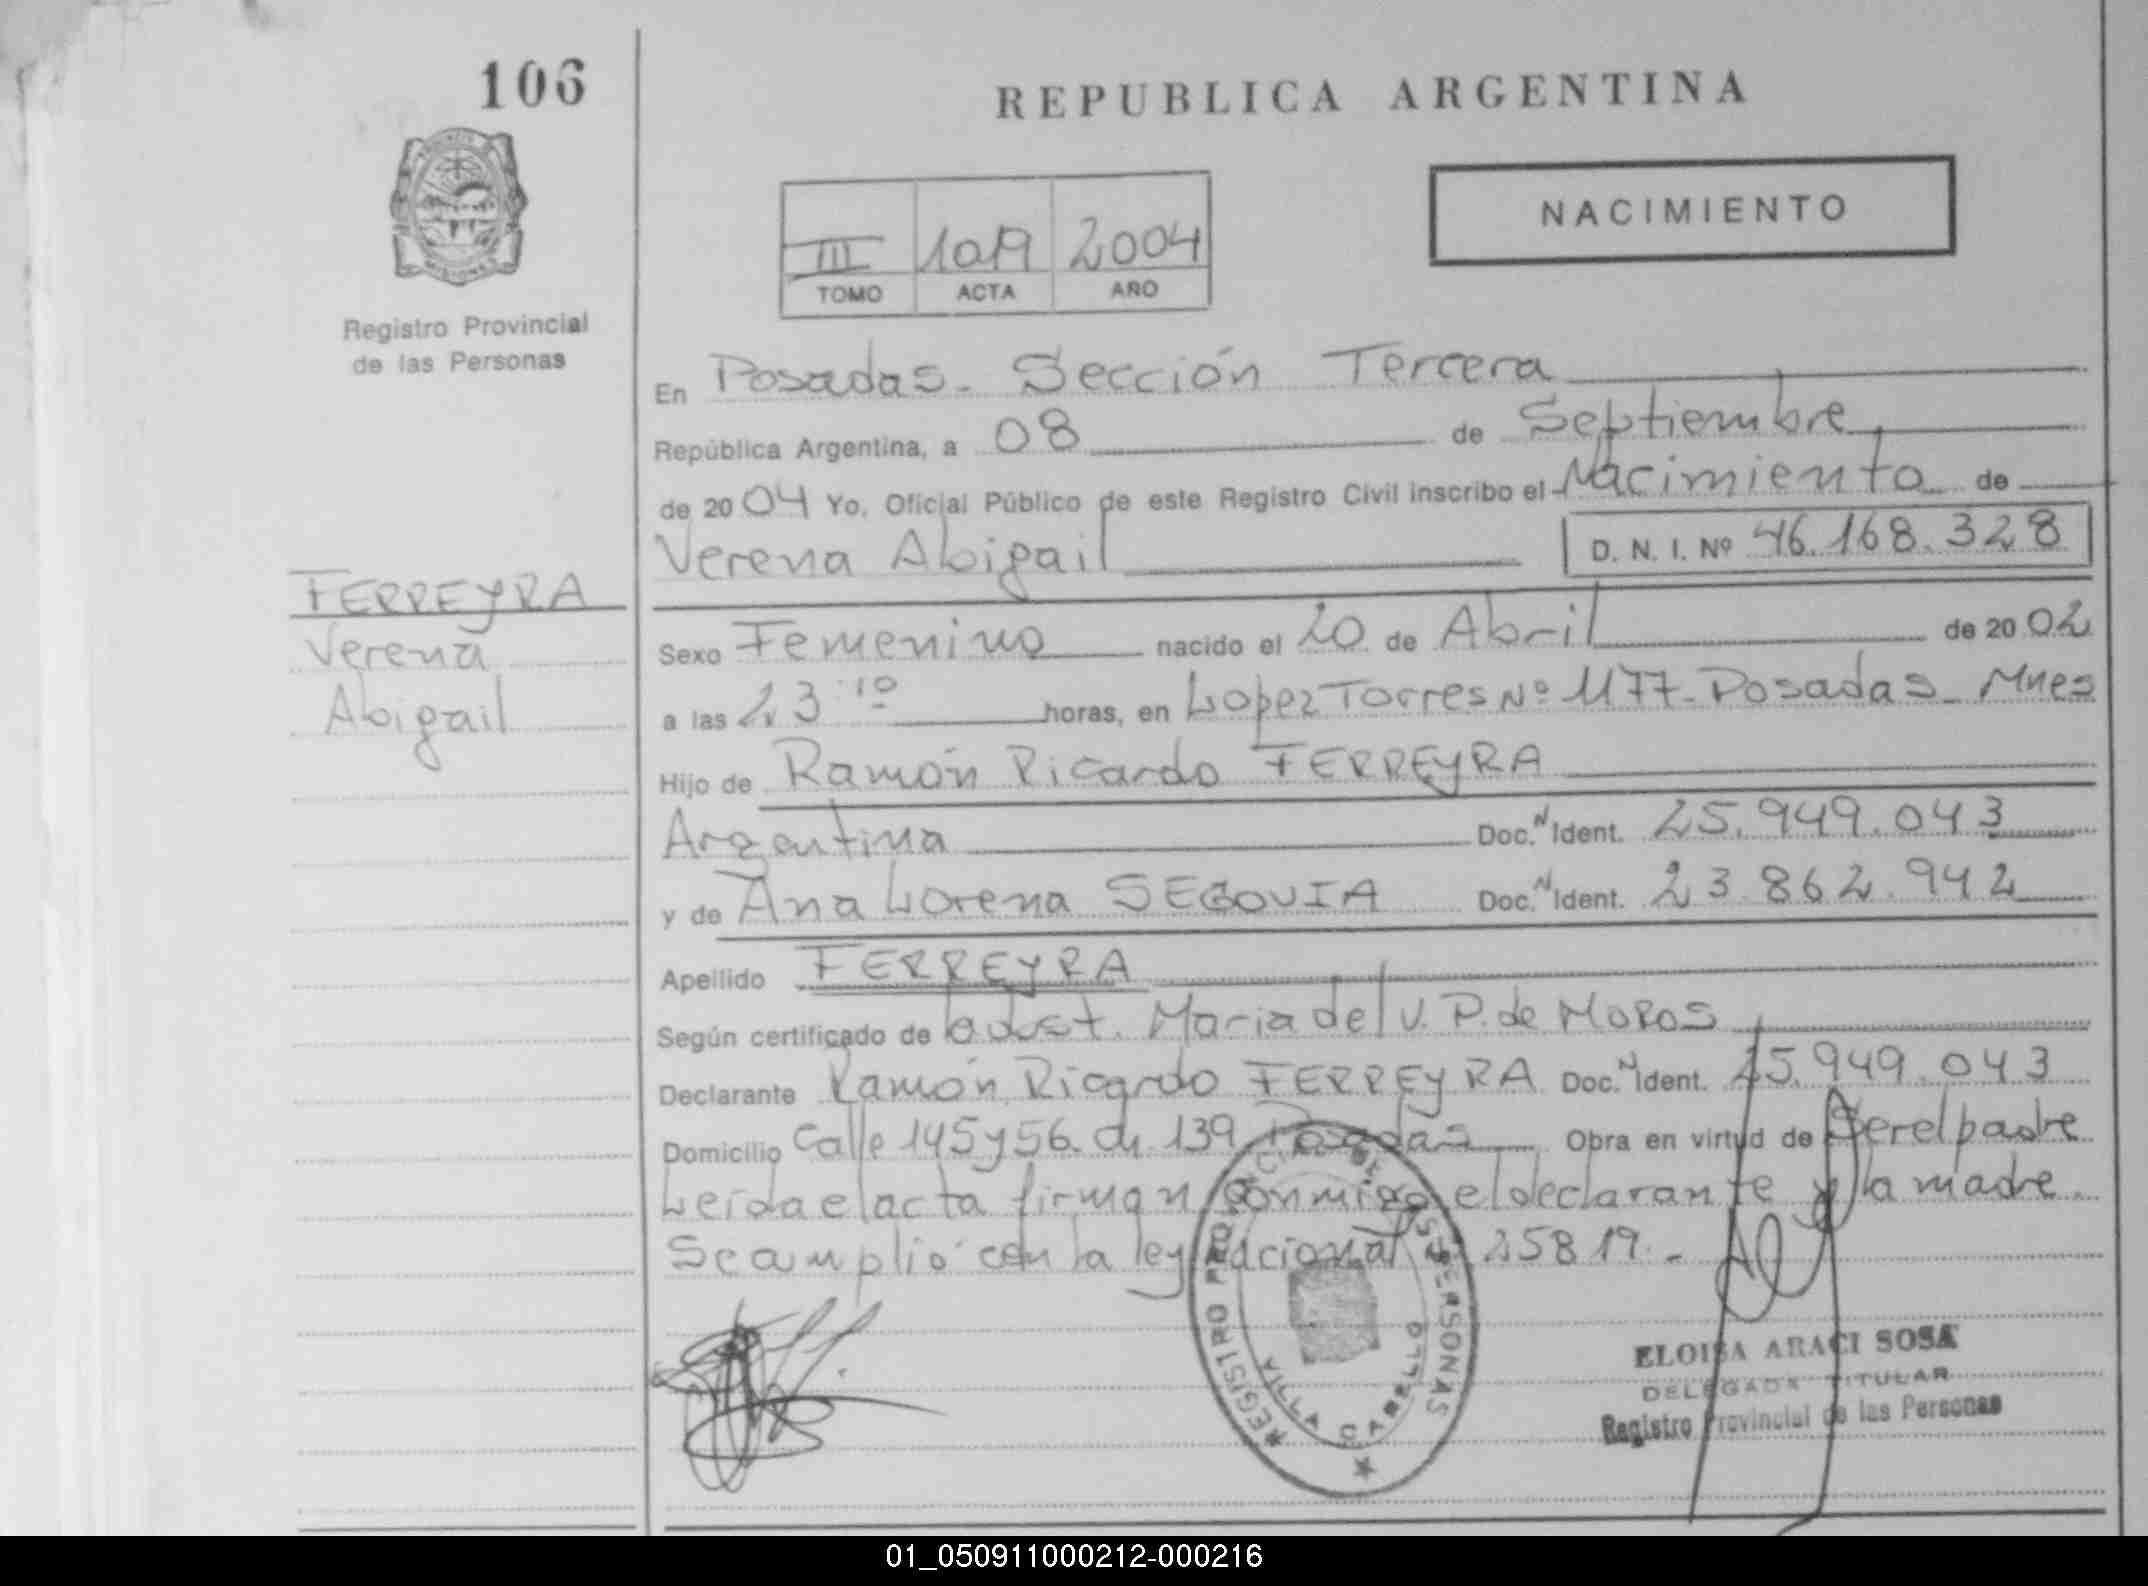 106
REPUBLICA ARGENTINA
NACIMIENTO
III 1019 2004
TOMO ACTA AÑO
MISIONES
Registro Provincial
de las Personas
En Posadas - Sección Tercera
República Argentina, a 08 de Septiembre
de 2004 Yo, Oficial Público de este Registro Civil inscribo el Nacimiento de
Verena Abigail D. N. I. Nº 46.168.328
FERREYRA
Verena
Abigail
Sexo Femenino nacido el 20 de Abril de 2002
a las 23:10 horas, en Lopez Torres Nº 1177 - Posadas - Mnes
Hijo de Ramón Ricardo FERREYRA
Argentina Doc. N Ident. 25.949.043
y de Ana Lorena SEGOVIA Doc. N Ident. 23.862.942
Apellido FERREYRA
Según certificado de la obst. Maria del V. P. de MOROS
Declarante Ramón Ricardo FERREYRA Doc. N Ident. 25.949.043
Domicilio Calle 145 y 56. ch 139 Posadas Obra en virtud de Ser el padre
Leída el acta firman conmigo el declarante y la madre.
Se cumplió con la ley nacional 25819.-
REGISTRO PROVINCIAL DE LAS PERSONAS
VILLA CABELLO
ELOISA ARACI SOSA
DELEGADA TITULAR
Registro Provincial de las Personas
01_050911000212-000216